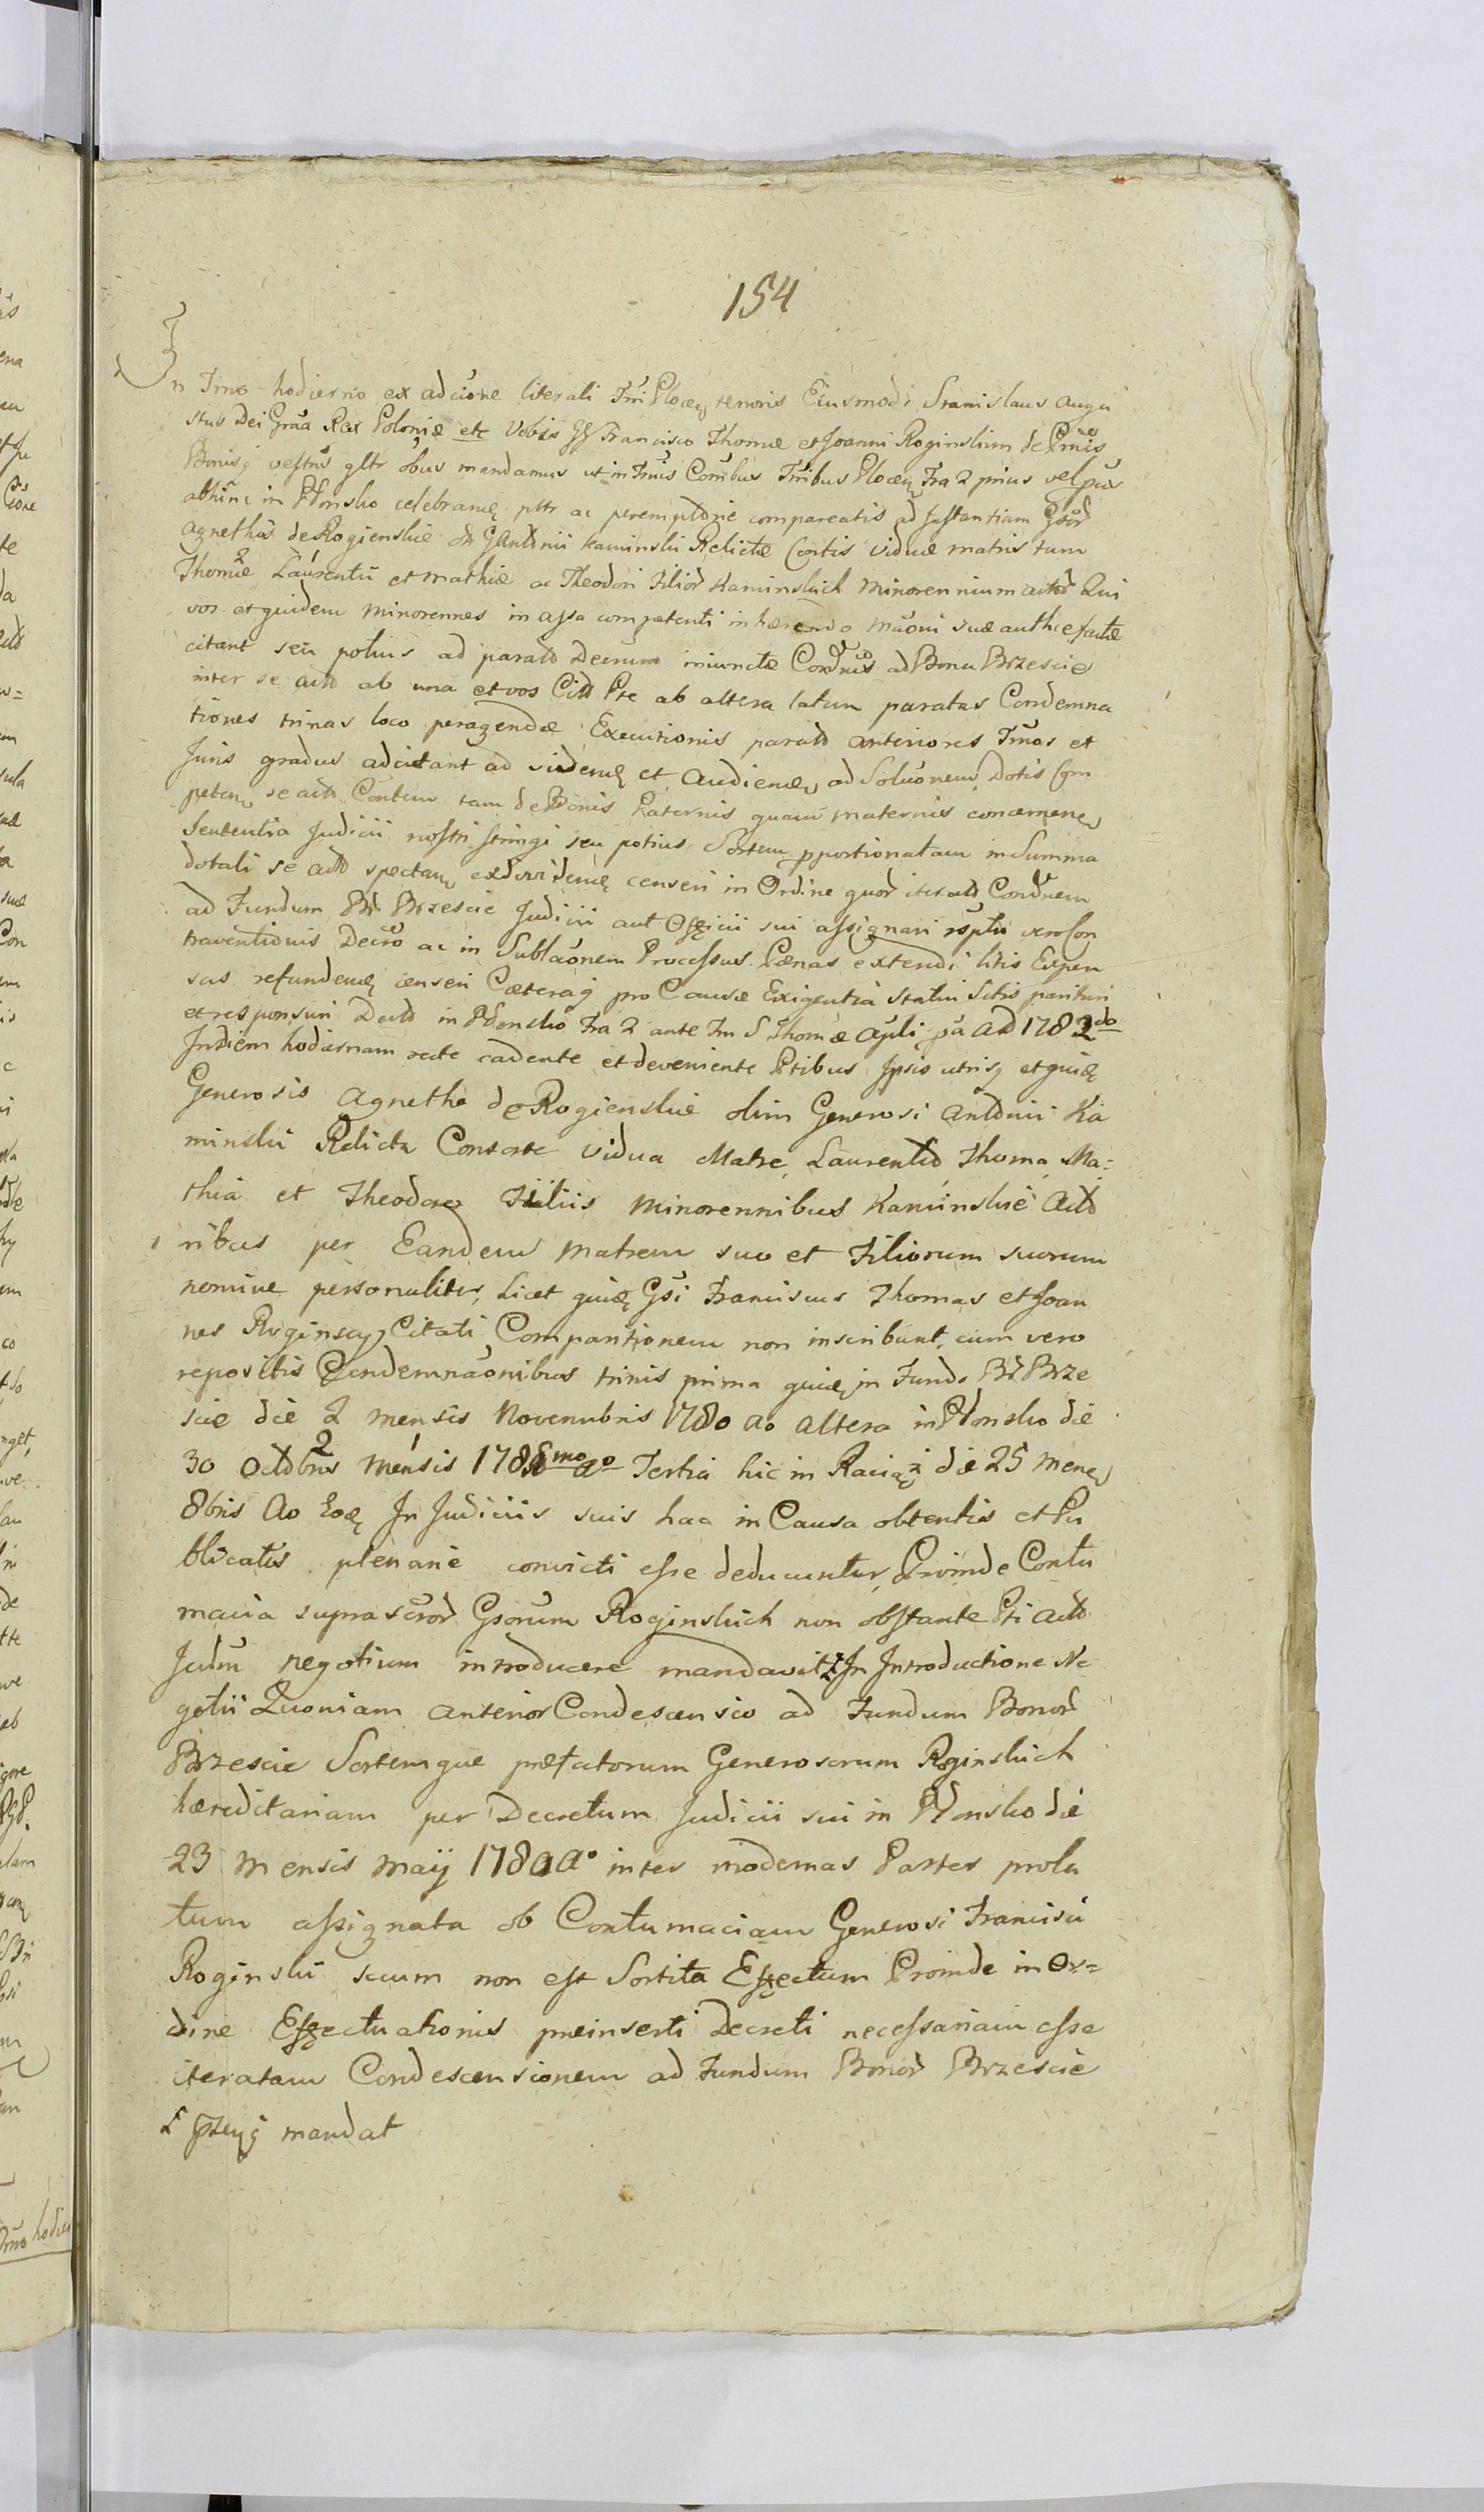 154
In Tmo hodierno ex adcione literali Tri Plocen, tenoris Eiusmodi Stanislaus Augu
stus Dei Grãa Rex Poloniæ etc Vobis GG Francisco Thomæ et Joanni Roginskim de Pmis
Bonisq vestris gltr õbus mandamus ut in Tmis Conibus Tribus Plocen, Fra 2 prius vel pũs
abhinc in Płonsko celebranę pltr ac peremptorie compareatis ad Instantiam Gsor
Agnethæ de Rogienskie olim G Antonii Kaminski Relictæ Contis Viduæ matris tum
Thomæ Laurentii et Mathiæ ac Theodori Filior Kaminskich Minorennium actor Qui
vos et quidem minorennes in assa competenti inhærendo mãoni suæ anthefactæ
citant seu potius ad parato Decrum iniunctæ Condnis ad Bona Brzescie
inter se acto ab una et vos Cito Pte ab altera latum paratas Condemna
tiones trinas loco peragendæ Executionis parato anteriores Tmos et
Juris gradus adcitant ad videnę et Audienę, ad Solũonem Dotis Com
peten, se acto Contem tam de Bonis Paternis quam maternis concernen,
Sententia Judicii nostri stringi seu potius Sortem pportionatam in Summa
dotali se acto spectan, exdividenę censeri in Ordine quor iterato Condnem
ad Fundum Br Brzescie Judicii aut Officii sui assignari rsptu vero Con
traventionis Decro ac in Sublãonem Processus Pænas extendi litis Expen
sas refundenę censeri Cæteraq pro Causæ Exigentia Statui Sitis parituri
et responsuri Dato in Płonsko Fra 2 ante Fm S Thomæ Apli pã AD 1782do
In Diem hodiernam recte cadente et deveniente Ptibus Ipsis utrisq et quię
Generosis Agnetha de Rogienskie olim Generosi Antonii Ka
minski Relicta Consorte Vidua Matre, Laurentio Thoma Ma=
thia et Theodoro Filiis Minorennibus Kaminskie Acto
ribus per Eandem Matrem suo et Filiorum suorum
nomine personaliter, Licet quię Gsi Franciscus Thomas et Joan
nes Roginscy Citati, Comparitionem non inscribunt, cum vero
repositis Condemnãonibus trinis prima quię in Fundo Br Brze
scie die 2 mensis Novembris 1780 ao altera in Płonsko die
30 Octobris Mensis 1781mo ao Tertia hic in Raciąż die 25 Mene,
8bris Ao Eoę In Judiciis suis hac in Causa obtentis et Pu
blicatis plenarie convicti esse deducuntur, Proinde Contu
macia suprascror Gsorum Roginskich non obstante Pti acto
Judm negotium introducere mandavit In Introductione Ne
gotii Quoniam anterior Condescensio ad Fundum Bonor
Brzescie Sortemque præfatorum Generosorum Roginskich
hæreditariam per Decretum Judicii sui in Płonsko die
23 Mensis Maij 1780 Ao inter modernas Partes prola
tum assignata ob Contumaciam Generosi Francisci
Roginski suum non est Sortita Effectum Proinde in Or=
dine Effectuationis preinserti Decreti necessariam esse
iteratam Condescensionem ad Fundum Bonor Brzescie
mandat